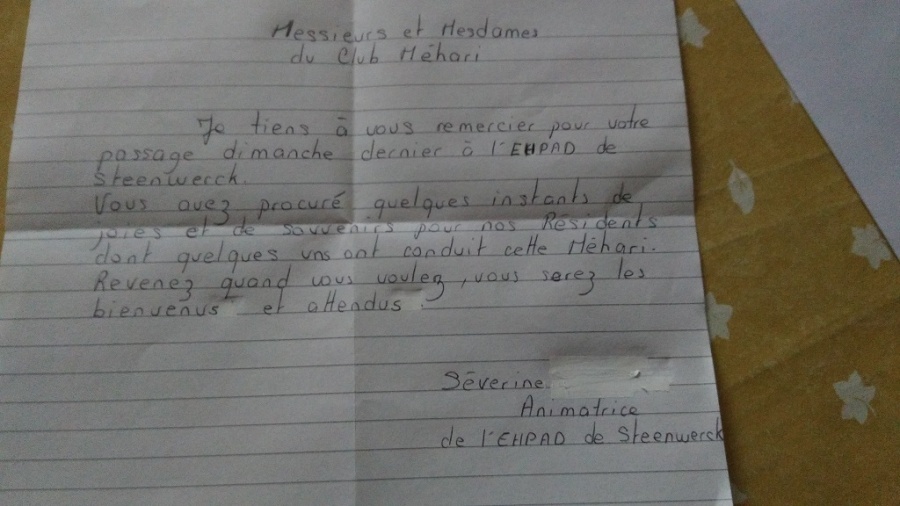 Messieurs et Mesdames
du Club Méhari
Je tiens à vous remercier pour votre
passage dimanche dernier à l'EHPAD de
Steenwerck.
Vous avez procuré quelques instants de
joies et de souvenirs pour nos Résidents
dont quelques uns ont conduit cette Méhari.
Revenez quand vous voulez, vous serez les
bienvenus et attendus.
Séverine
Animatrice
de l'EHPAD de Steenwerck